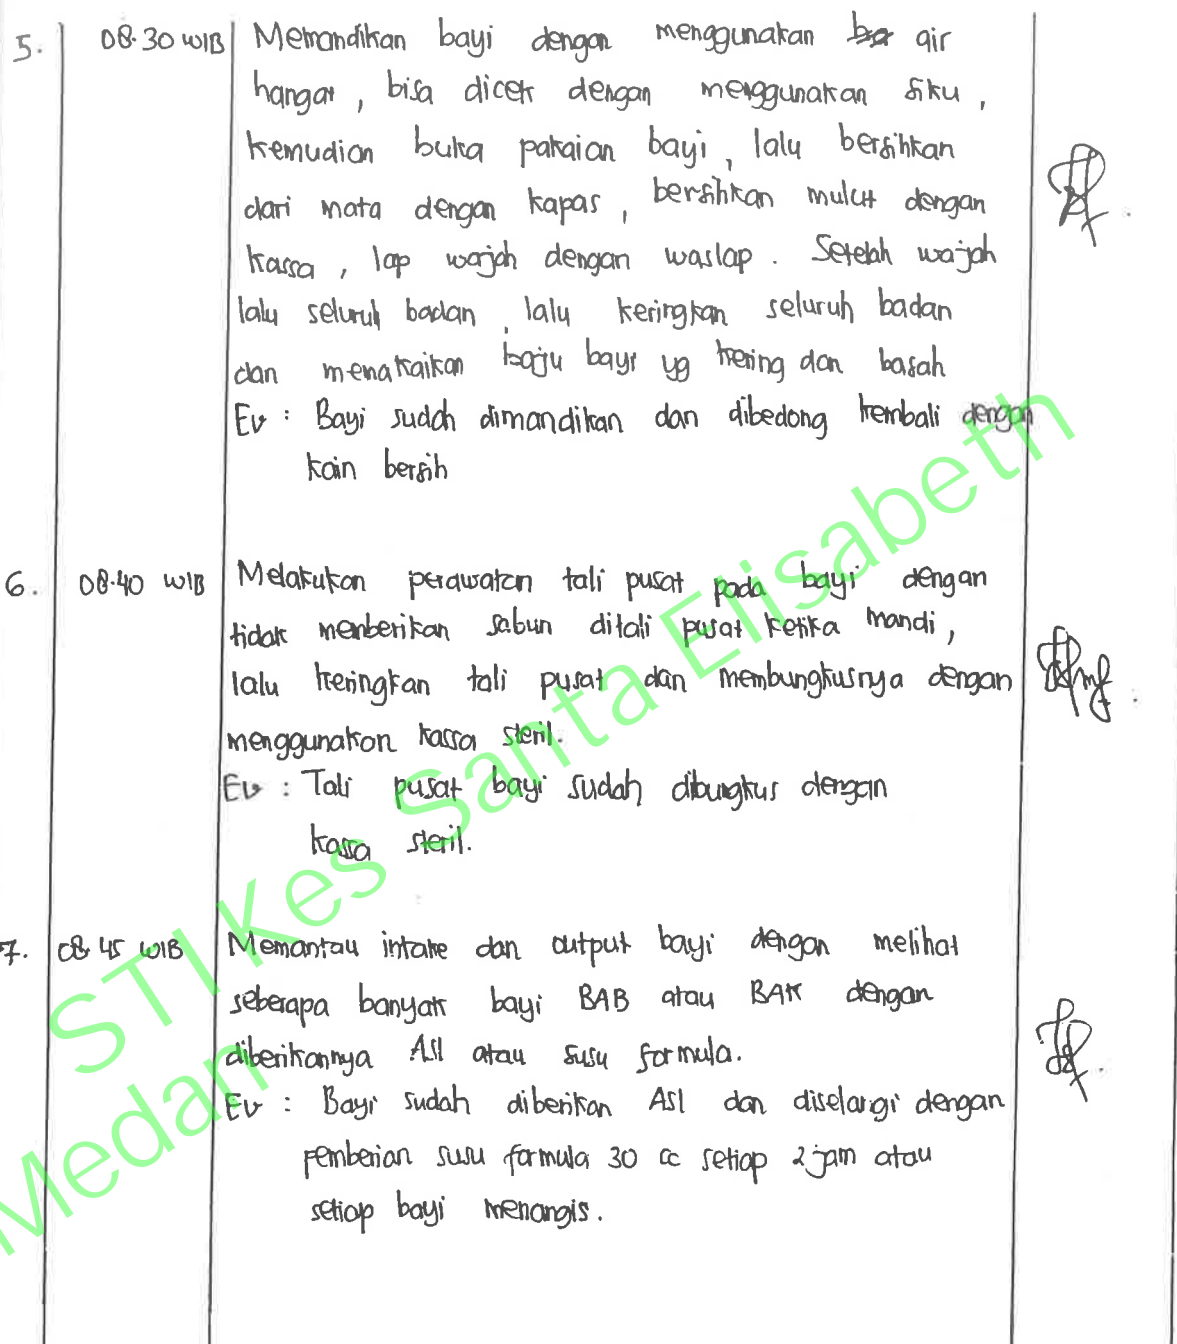 5. 08.30 WIB Memandikan bayi dengan menggunakan ba air
hangat, bisa dicek dengan menggunakan siku,
kemudian buka pakaian bayi, lalu bersihkan
dari mata dengan kapas, bersihkan mulut dengan
kassa, lap wajah dengan waslap. Setelah wajah
lalu seluruh badan, lalu keringkan seluruh badan
dan menakaikan baju bayi yg kering dan basah
Ev : Bayi sudah dimandikan dan dibedong kembali dengan
kain bersih
6. 08.40 WIB Melakukan perawatan tali pusat pada bayi dengan
tidak menberikan sabun ditali pusat ketika mandi,
lalu keringkan tali pusat dan membungkusnya dengan
menggunakan kassa steril.
Ev : Tali pusat bayi sudah dibungkus dengan
kassa steril.
7. 08.45 WIB Memantau intake dan output bayi dengan melihat
seberapa banyak bayi BAB atau BAK dengan
diberikannya ASI atau susu formula.
Ev : Bayi sudah diberikan ASI dan diselangi dengan
pemberian susu formula 30 cc setiap 2 jam atau
setiap bayi menangis.
STIKes Santa Elisabeth
Medan